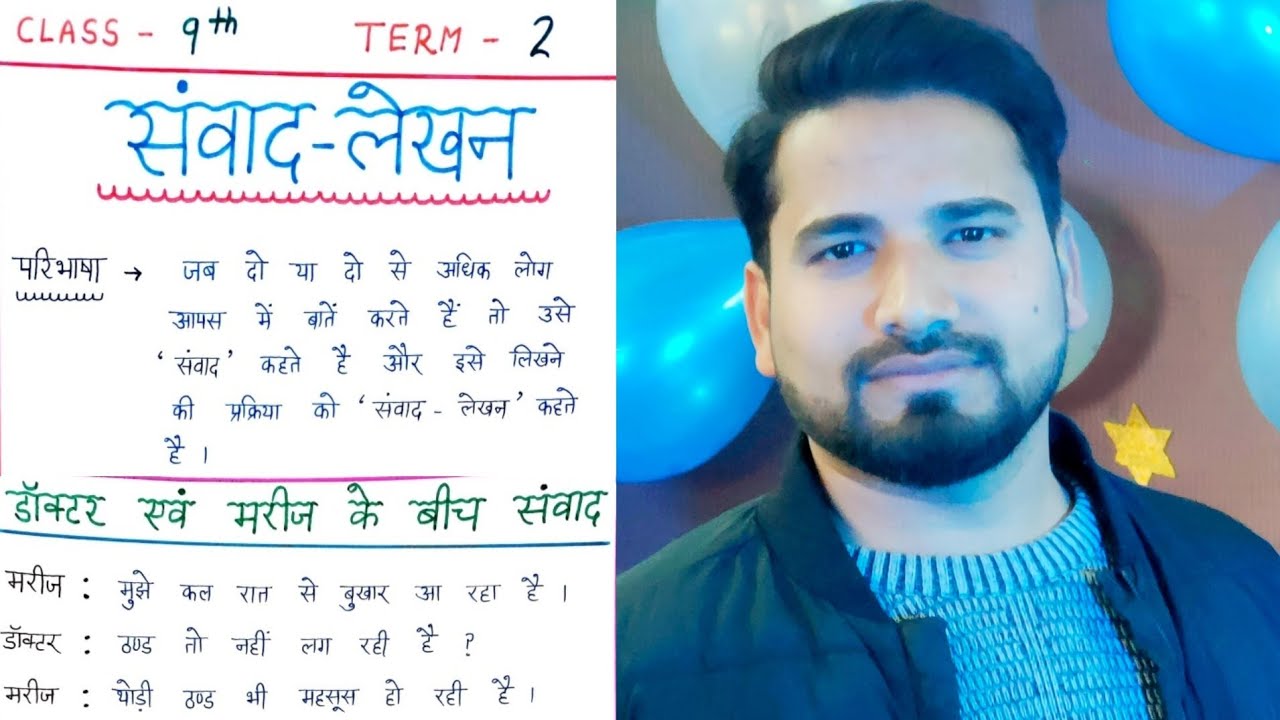 CLASS - 9th TERM - 2
संवाद-लेखन
परिभाषा → जब दो या दो से अधिक लोग
आपस में बातें करते हैं तो उसे
‘संवाद’ कहते है और इसे लिखने
की प्रक्रिया को ‘संवाद - लेखन’ कहते
है ।
डॉक्टर एवं मरीज के बीच संवाद
मरीज : मुझे कल रात से बुखार आ रहा है ।
डॉक्टर : ठण्ड तो नहीं लग रही है ?
मरीज : थोड़ी ठण्ड भी महसूस हो रही है ।